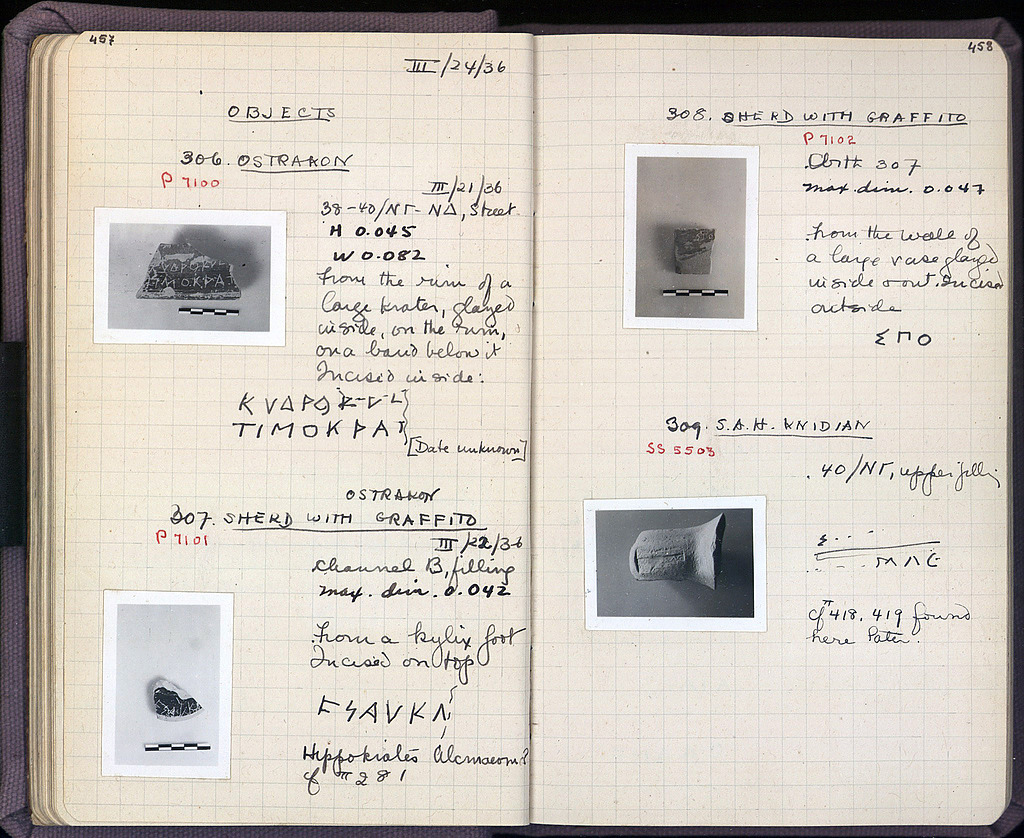 457
III/24/36
OBJECTS
306. OSTRAKON
P 7100
III/21/36
38-40/ΝΓ-ΝΔ, Street
H 0.045
W 0.082
From the rim of a
large krater, glazed
inside, on the rim,
on a band below it
Incised inside:
ΚVΔΡΟ
ΤΙΜΟΚΡΑΤ
[Date unknown]
OSTRAKON
307. SHERD WITH GRAFFITO
P 7101
III/22/36
Channel B, filling
max. dim. 0.042
From a kylix foot
Incised on top
Hippokrates Alcmaeon?
cf π 281
458
308. SHERD WITH GRAFFITO
P 7102
Do with 307
max. dim. 0.047
From the wall of
a large vase glazed
inside & out. Incised
outside
Σ Π Ο
309. S.A.H. KNIDIAN
SS 5503
40/ΝΓ, upper filling
cf π 418, 419 found
here later.